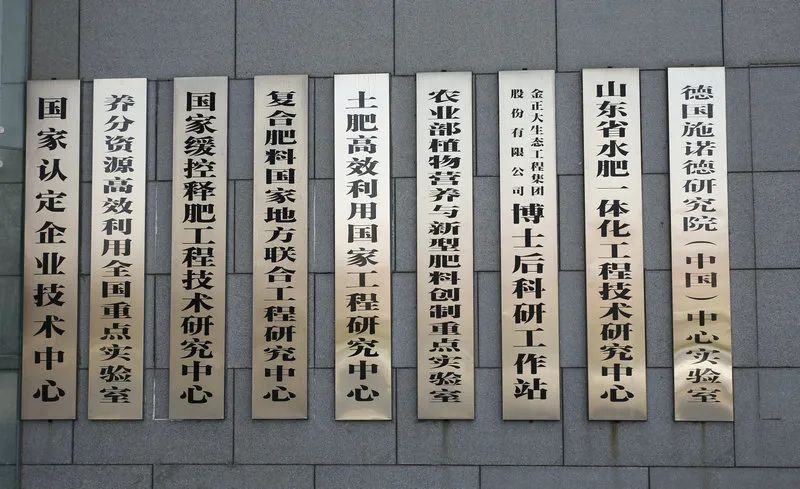 国家认定企业技术中心
养分资源高效利用全国重点实验室
国家缓控释肥工程技术研究中心
复合肥料国家地方联合工程研究中心
土肥高效利用国家工程研究中心
农业部植物营养与新型肥料创制重点实验室
金正大生态工程集团
股份有限公司
博士后科研工作站
山东省水肥一体化工程技术研究中心
德国施诺德研究院（中国）中心实验室